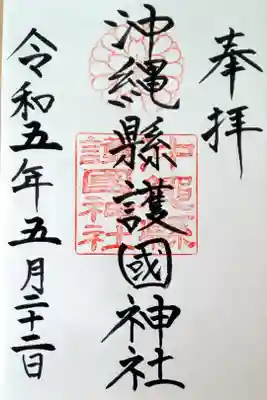 奉拝
沖縄縣護國神社
沖縄縣護國神社
令和五年五月二十二日